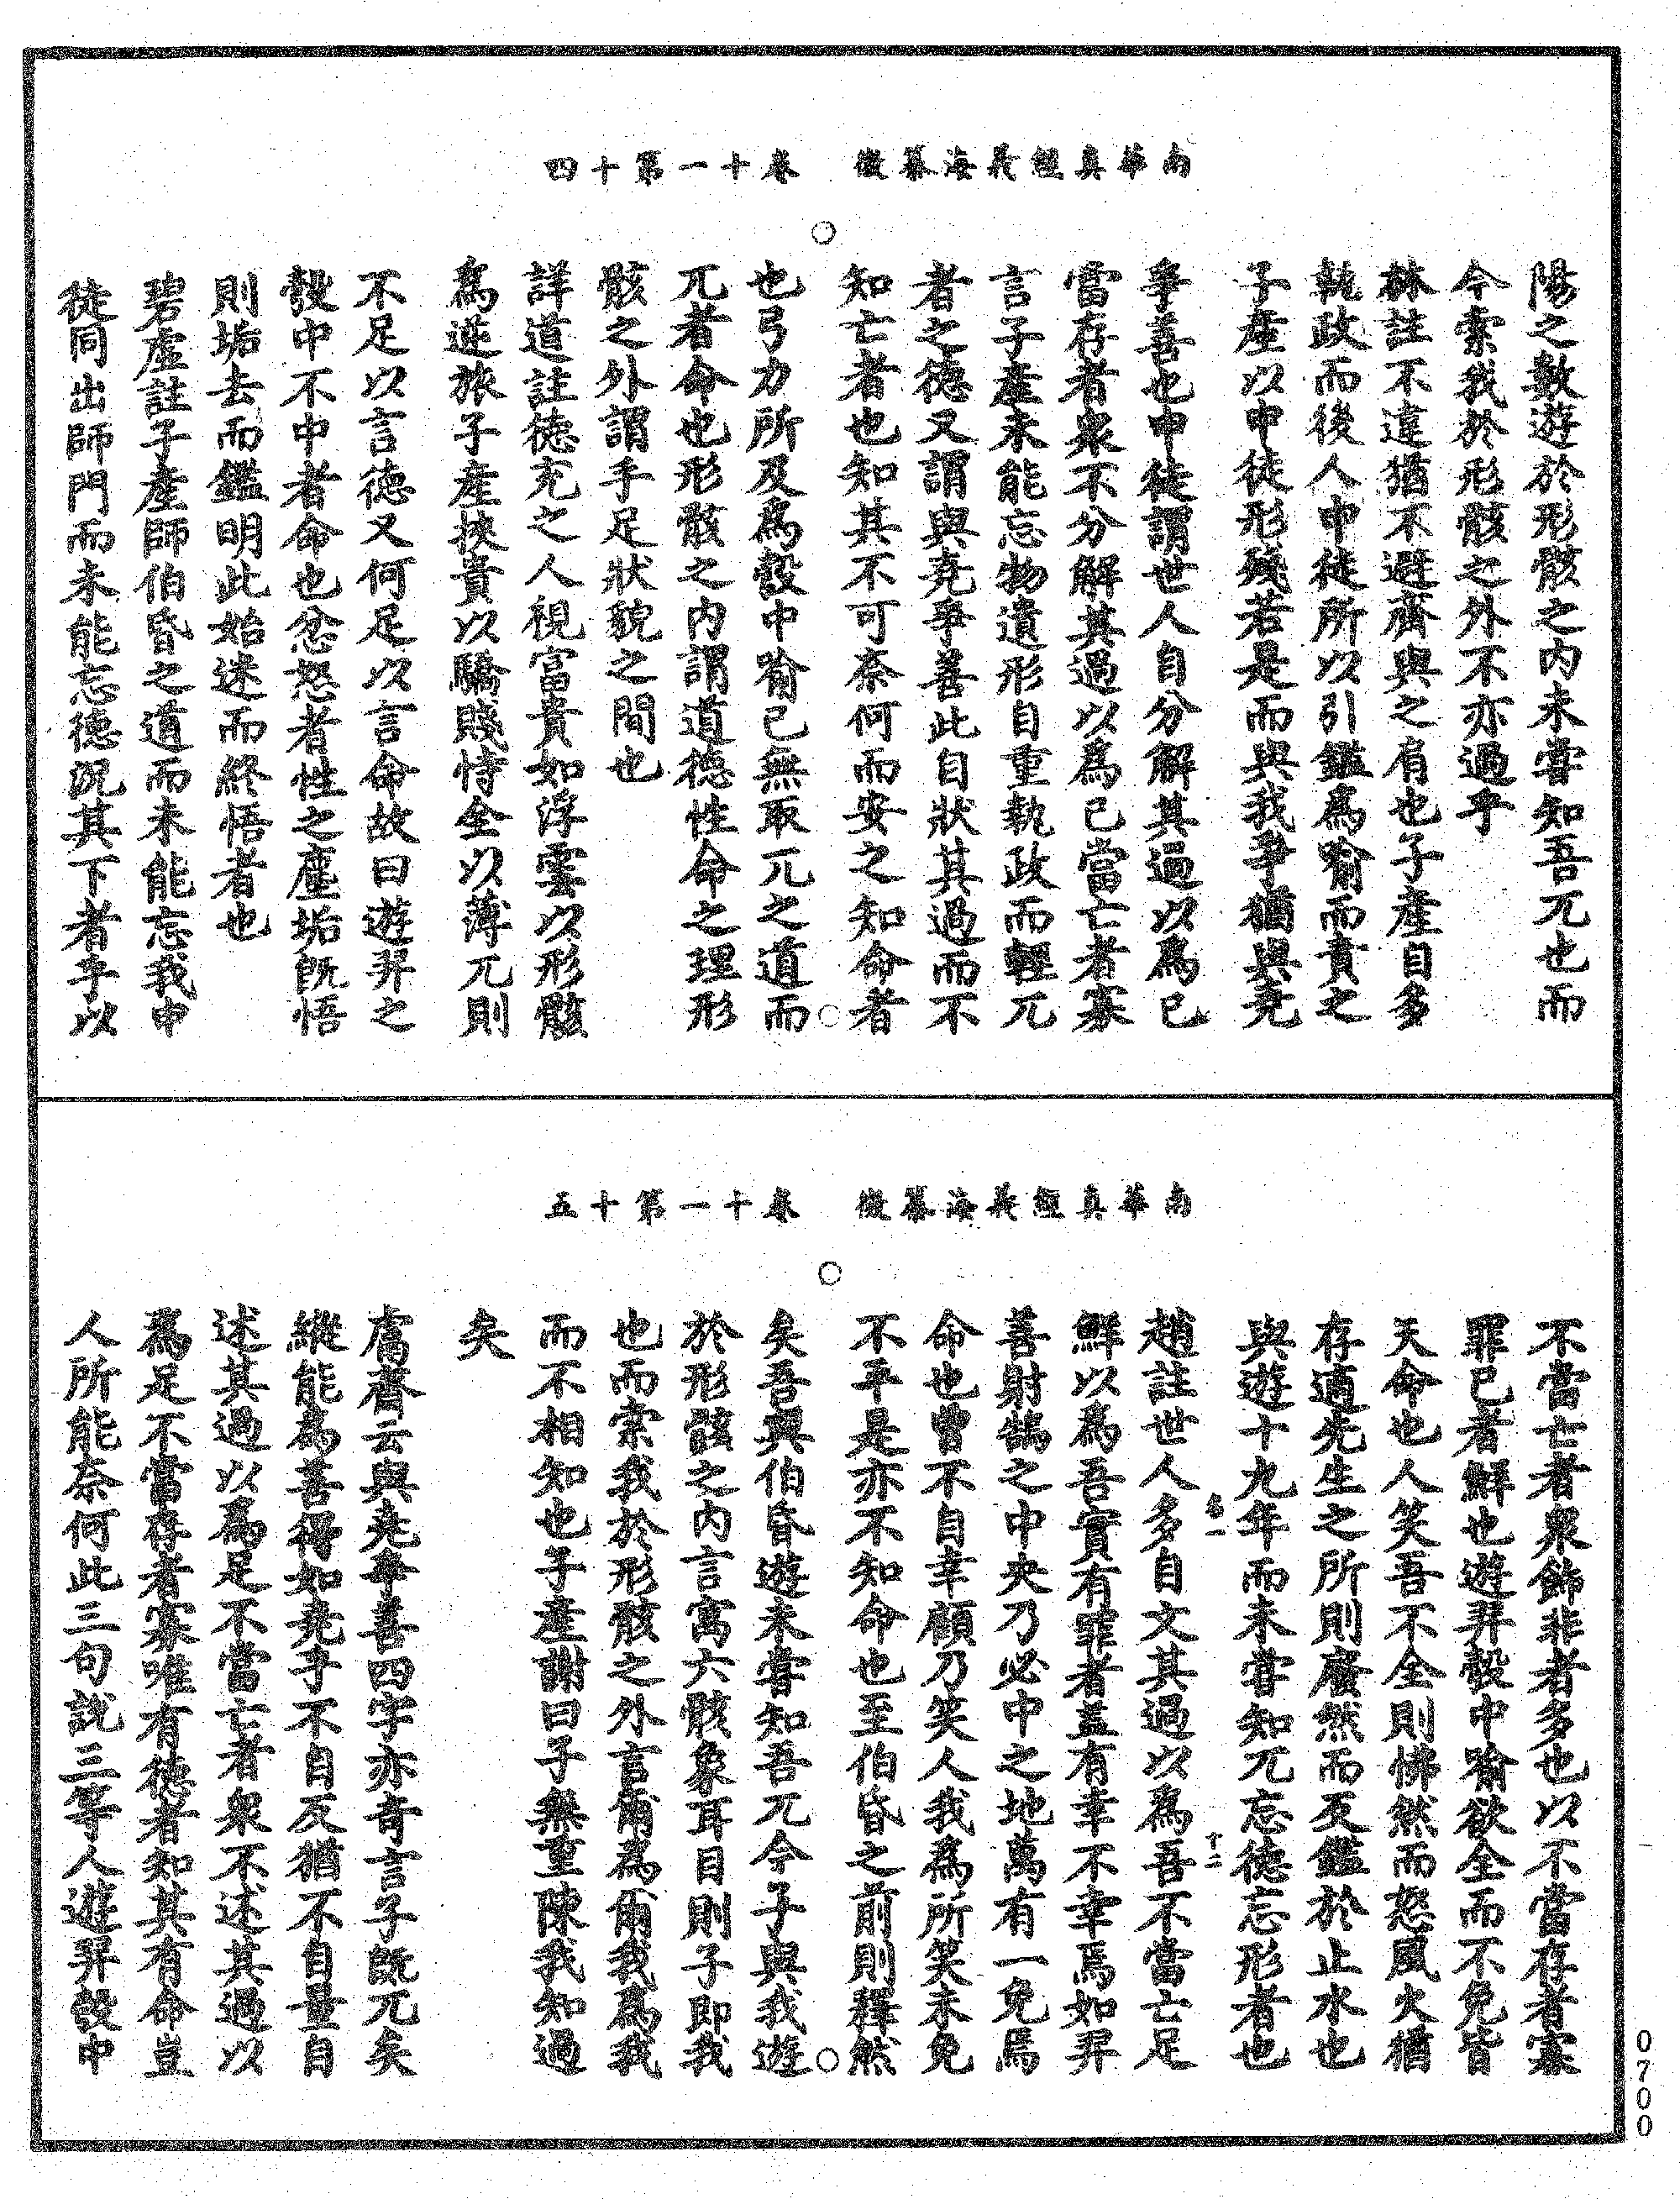 南華真經義海纂微　卷十一第十四
陽之數遊於形骸之內未嘗知吾兀也而
今索我於形骸之外不亦過乎
林註不違猶不避齊與之肩也子產自多
執政而後人申徒所以引鑑為喻而責之
子產以申徒形殘若是而與我爭猶與堯
爭善也申徒謂世人自分解其過以為已
當存者衆不分解其過以為已當亡者寡
言子產未能忘物遺形自重執政而輕兀
者之德又謂與堯爭善此自狀其過而不
知亡者也知其不可奈何而安之知命者
也弓力所及為彀中喻已無取兀之道而
兀者命也形骸之內謂道德性命之理形
骸之外謂手足狀貌之間也
詳道註德充之人視富貴如浮雲以形骸
為逆旅子產挾貴以驕賤恃全以薄兀則
不足以言德又何足以言命故曰遊羿之
彀中不中者命也忿怒者性之塵垢既悟
則垢去而鑑明此始迷而終悟者也
碧虛註子產師伯昏之道而未能忘我申
徒同出師門而未能忘德況其下者乎以
南華真經義海纂微　卷十一第十五
不當亡者衆飾非者多也以不當存者寡
罪已者鮮也遊羿彀中喻欲全而不免皆
天命也人笑吾不全則怫然而怒風火猶
存適先生之所則廢然而反鑑於止水也
與遊十九年而未嘗知兀忘德忘形者也
趙註世人多自文其過以為吾不當亡足
鮮以為吾實有罪者蓋有幸不幸焉如羿
善射鵠之中央乃必中之地萬有一免焉
命也曾不自幸顧乃笑人我為所笑未免
不平是亦不知命也至伯昏之前則釋然
矣吾與伯昏遊未嘗知吾兀今子與我遊
於形骸之內言寓六骸象耳目則子即我
也而索我於形骸之外言爾為爾我為我
而不相知也子產謝曰子無重陳我知過
矣
鬳齋云與堯爭善四字亦奇言子既兀矣
縱能為善得如堯乎不自反猶不自量自
述其過以為足不當亡者衆不述其過以
為足不當存者寡唯有德者知其有命豈
人所能奈何此三句說三等人遊羿彀中
0700